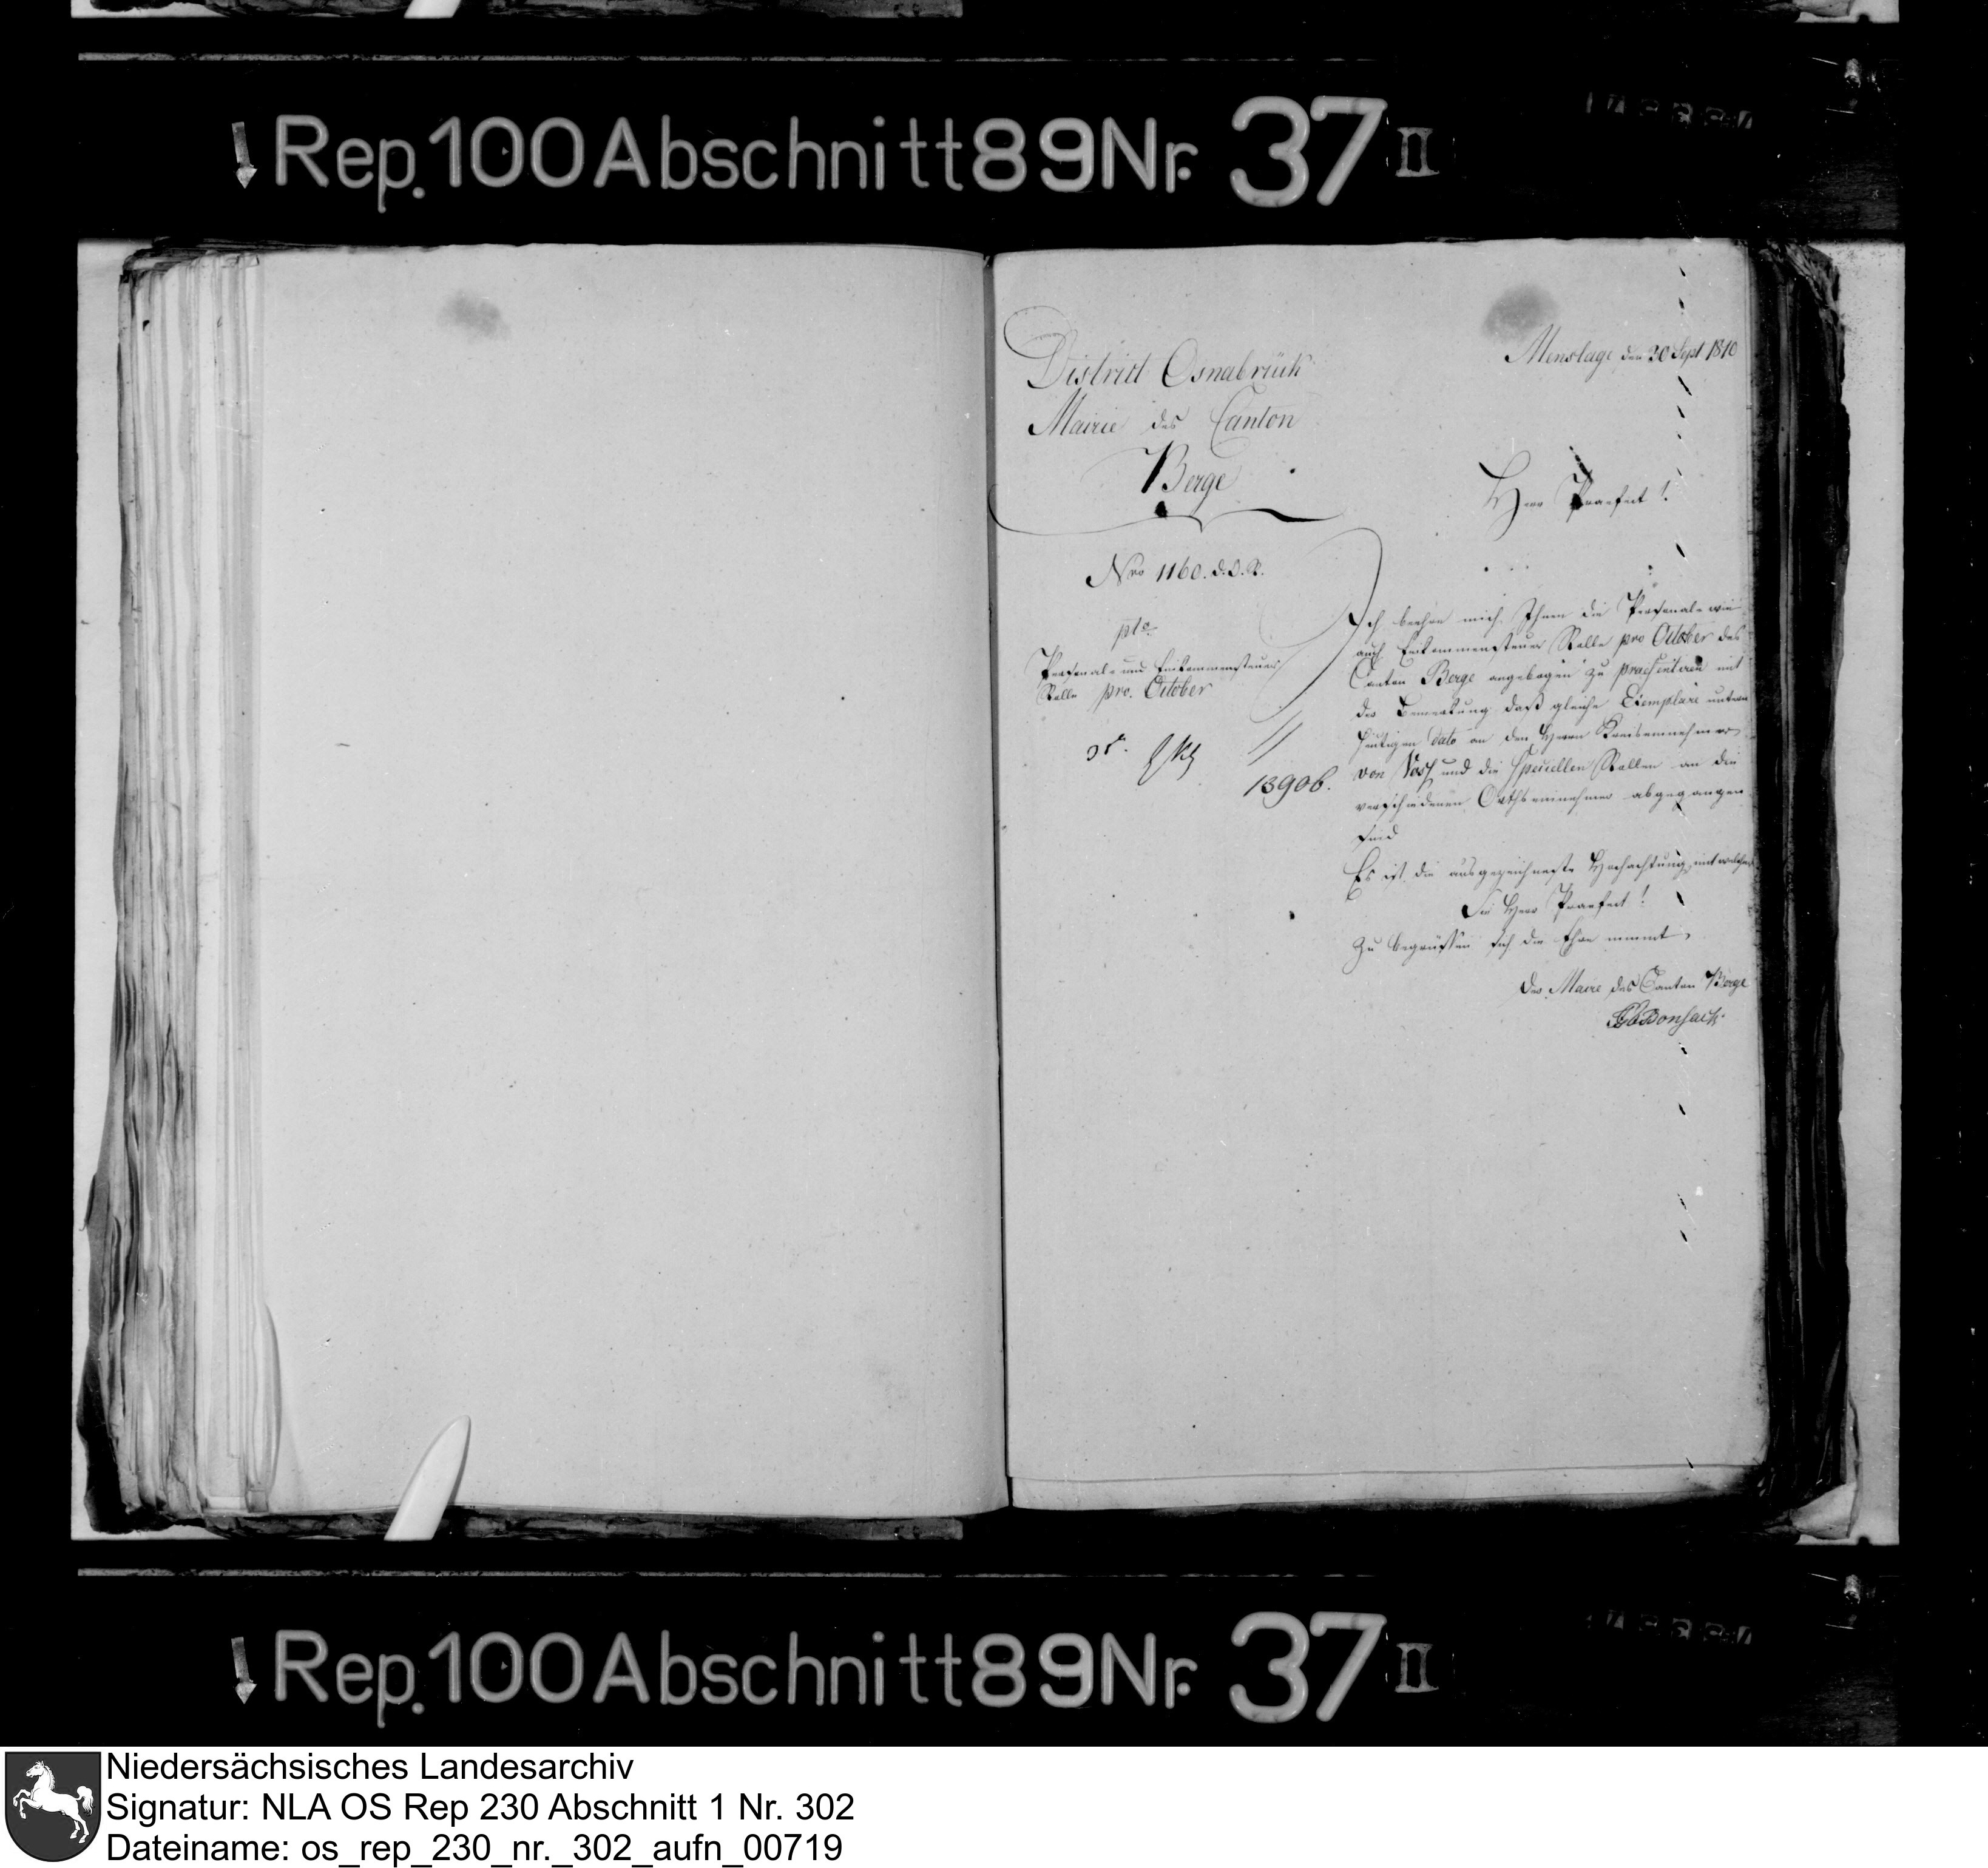 Rep. 100 Abschnitt 89 Nr. 37 II
Menslage den 30 Sept 1810
District Osnabrück
Mairie des Canton
Berge
Herr Praefect!
Nro 1160. d. O. R.
pto
Personal- und Einkommensteuer
Rolle pro. October
13906.
Ich beehre mich Ihnen die Personal- wie
auch Einkommensteuer Rolle pro October des
Canton Berge angebogen zu praesentiren mit
der Bemerkung daß gleiche Exemplare unterm
heutigen dato an den Herrn Kreiseinnehmer
von Voss und die speciellen Rollen an die
verschiedenen Ortseinnehmer abgegangen
sind
Es ist die ausgezeichneste Hochachtung mit welcher
Sie Herr Praefect!
zu begrüssen sich die Ehre nimmt
der Maire des Canton Berge
Bonsack
Rep. 100 Abschnitt 89 Nr. 37 II
Niedersächsisches Landesarchiv
Signatur: NLA OS Rep 230 Abschnitt 1 Nr. 302
Dateiname: os_rep_230_nr._302_aufn_00719